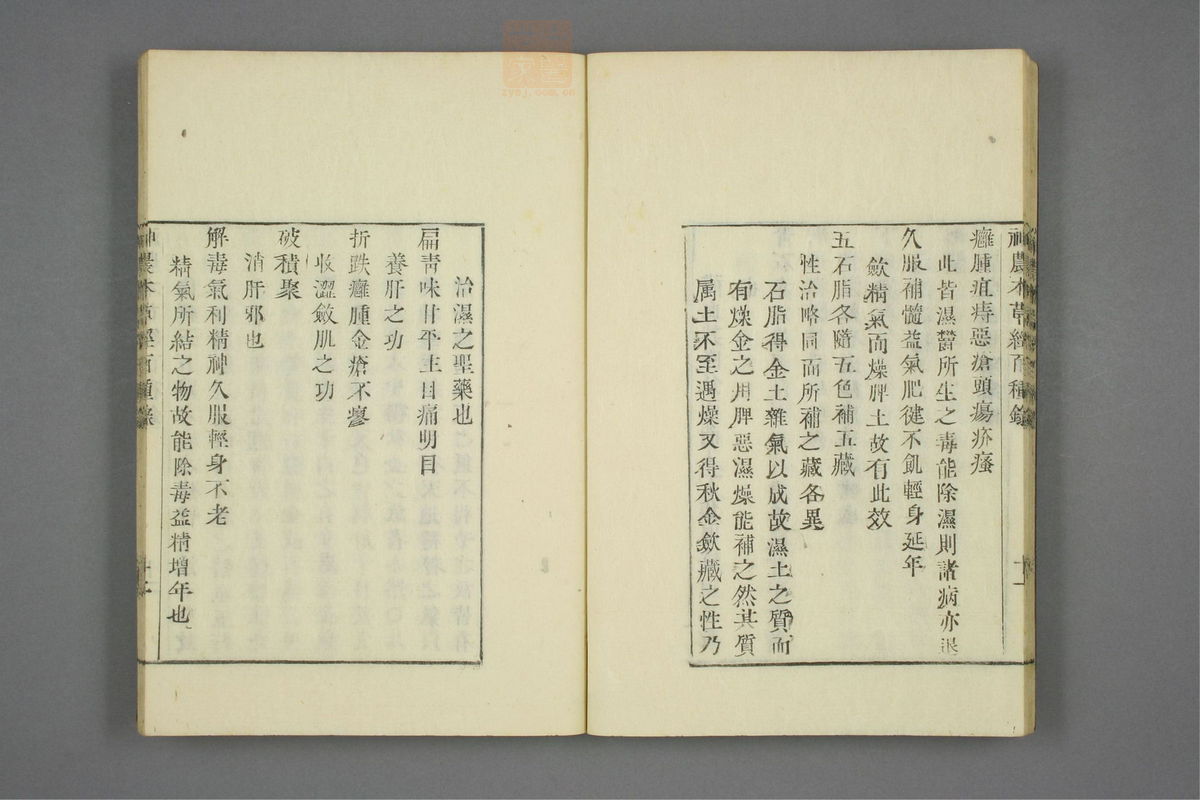 神農本草經百種錄
十一
癰腫疽痔惡瘡頭瘍疥瘙
此皆濕鬱所生之毒能除濕則諸病亦退
久服補髓益氣肥健不飢輕身延年
斂精氣而燥脾土故有此效
五石脂各隨五色補五藏
性治略同而所補之藏各異
石脂得金土雜氣以成故濕土之質而
有燥金之用脾惡濕燥能補之然其質
属土不至過燥又得秋金斂藏之性乃
治濕之聖藥也
扁青味甘平主目痛明目
養肝之功
折跌癰腫金瘡不瘳
收澀斂肌之功
破積聚
消肝邪也
解毒氣利精神久服輕身不老
精氣所結之物故能除毒益精增年也
神農本草經百種錄
zysj.com.cn